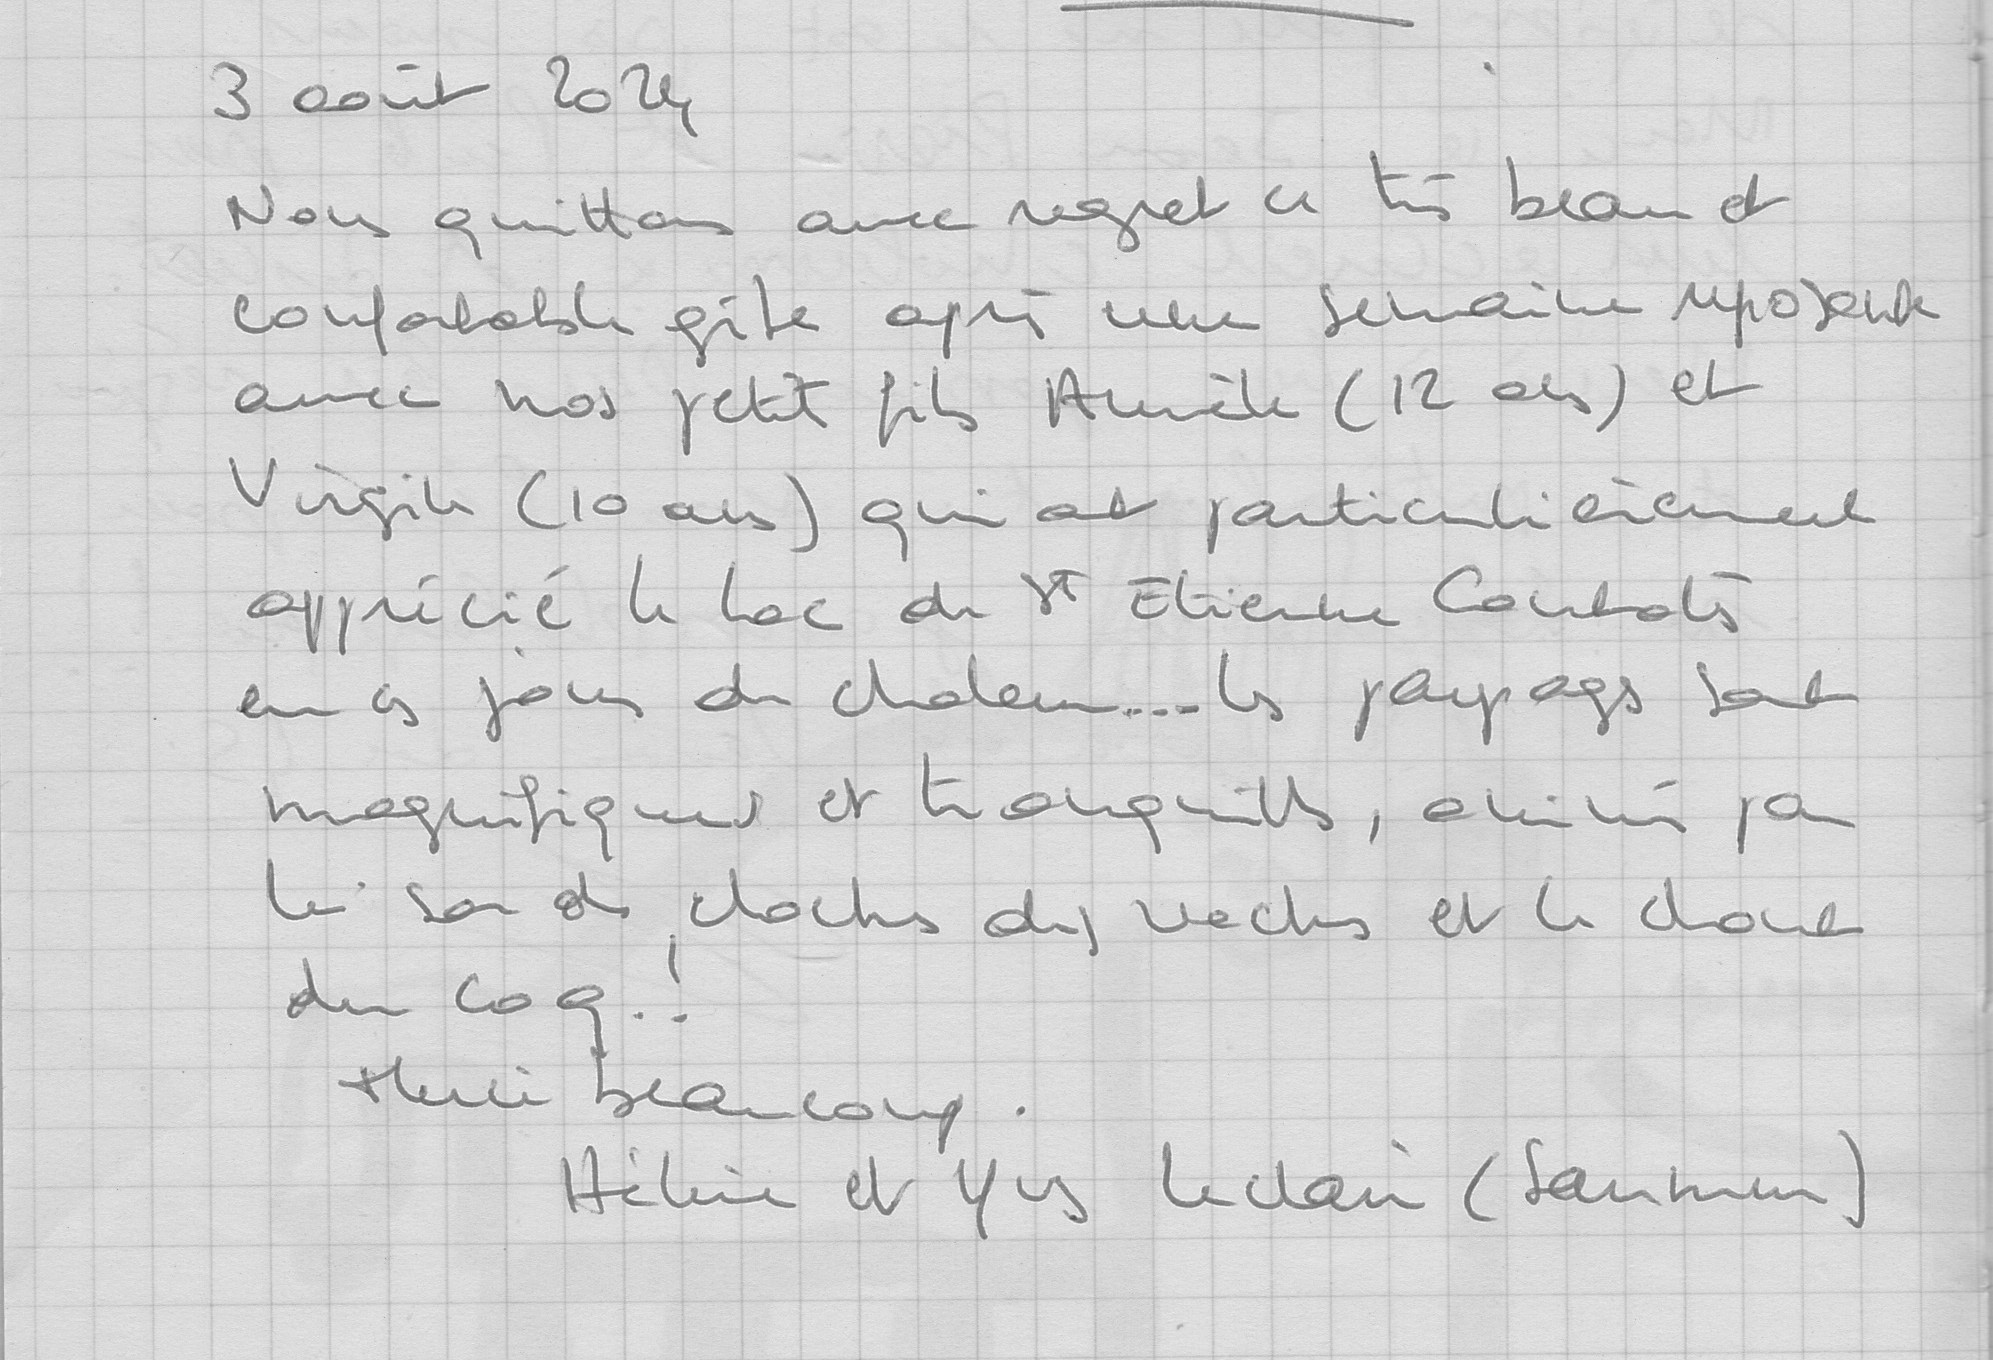 3 août 2024
Nous quittons avec regret ce très beau et
confortable gîte après une semaine reposante
avec nos petits fils Aurèle (12 ans) et
Virgile (10 ans) qui ont particulièrement
apprécié le lac de St Etienne Cantalès
en ces jours de chaleur... les paysages sont
magnifiques et tranquilles, animés par
le son des cloches des vaches et le chant
du coq..!
Merci beaucoup.
Hélène et Yves Leclair (Saumur)